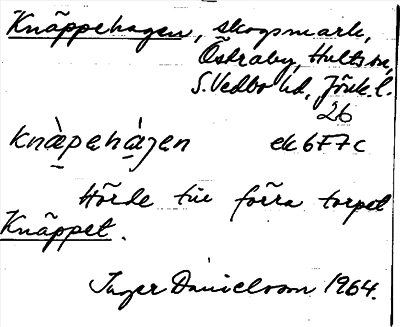 Knäppehagen, skogsmark,
Östraby, Hults sn,
S. Vedbo hd, Jönk. l.
26
knäpehàgen ek 6F7c
Hörde till förra torpet
Knäppet.
Inger Danielsson 1964.